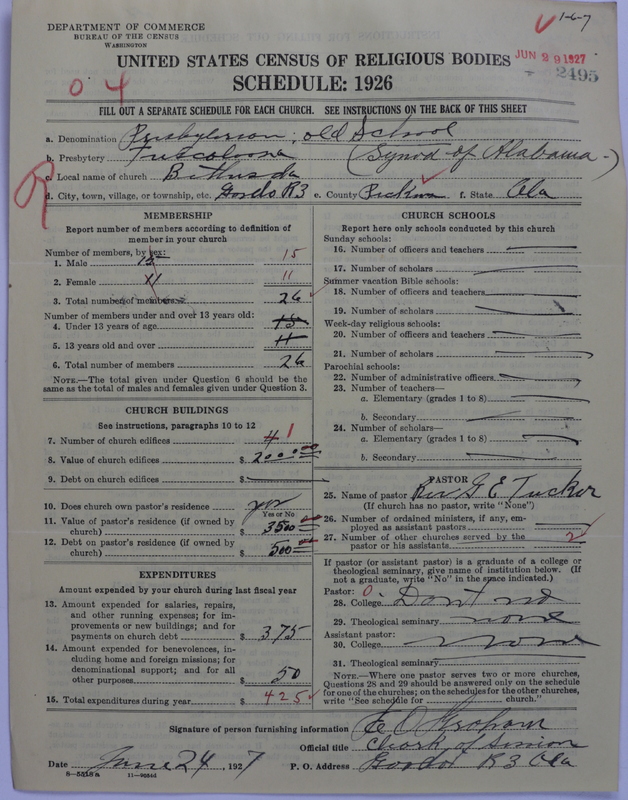 DEPARTMENT OF COMMERCE
BUREAU OF THE CENSUS
WASHINGTON
1-6-7
UNITED STATES CENSUS OF RELIGIOUS BODIES
JUN 29 1927
2495
SCHEDULE: 1926
0 4
FILL OUT A SEPARATE SCHEDULE FOR EACH CHURCH. SEE INSTRUCTIONS ON THE BACK OF THIS SHEET
a. Denomination Presbyterian, old School
b. Presbytery Tuscaloosa (Synod of Alabama)
c. Local name of church
d. City, town, village, or township, etc. Gordo R3 e. County Pickens f. State Ala
MEMBERSHIP
Report number of members according to definition of
member in your church
Number of members, by sex:
1. Male 15 15
2. Female 11 11
3. Total number of members 26
Number of members under and over 13 years old:
4. Under 13 years of age 15
5. 13 years old and over 11
6. Total number of members 26
NOTE.—The total given under Question 6 should be the
same as the total of males and females given under Question 3.
CHURCH BUILDINGS
See instructions, paragraphs 10 to 12
7. Number of church edifices 1
8. Value of church edifices $ 2000.00
9. Debt on church edifices $
10. Does church own pastor's residence yes
Yes or No
11. Value of pastor's residence (if owned by
church) $ 3500
12. Debt on pastor's residence (if owned by
church) $ 500
EXPENDITURES
Amount expended by your church during last fiscal year
13. Amount expended for salaries, repairs,
and other running expenses; for im-
provements or new buildings; and for
payments on church debt $ 375
14. Amount expended for benevolences, in-
cluding home and foreign missions; for
denominational support; and for all
other purposes $ 50
15. Total expenditures during year $ 425
CHURCH SCHOOLS
Report here only schools conducted by this church
Sunday schools:
16. Number of officers and teachers
17. Number of scholars
Summer vacation Bible schools:
18. Number of officers and teachers
19. Number of scholars
Week-day religious schools:
20. Number of officers and teachers
21. Number of scholars
Parochial schools:
22. Number of administrative officers
23. Number of teachers—
a. Elementary (grades 1 to 8)
b. Secondary
24. Number of scholars—
a. Elementary (grades 1 to 8)
b. Secondary
PASTOR
25. Name of pastor Rev G E Tucker
(If church has no pastor, write "None")
26. Number of ordained ministers, if any, em-
ployed as assistant pastors
27. Number of other churches served by the
pastor or his assistants 2
If pastor (or assistant pastor) is a graduate of a college or
theological seminary, give name of institution below. (If
not a graduate, write "No" in the space indicated.)
Pastor: 0.
28. College Dont no
29. Theological seminary none
Assistant pastor:
30. College none
31. Theological seminary
NOTE.—Where one pastor serves two or more churches,
Questions 28 and 29 should be answered only on the schedule
for one of the churches; on the schedules for the other churches,
write "See schedule for church."
Signature of person furnishing information E O Graham
Official title Clerk of
Date June 24, 1927 P. O. Address Gordo R3 Ala
8—5518a 11—9094d